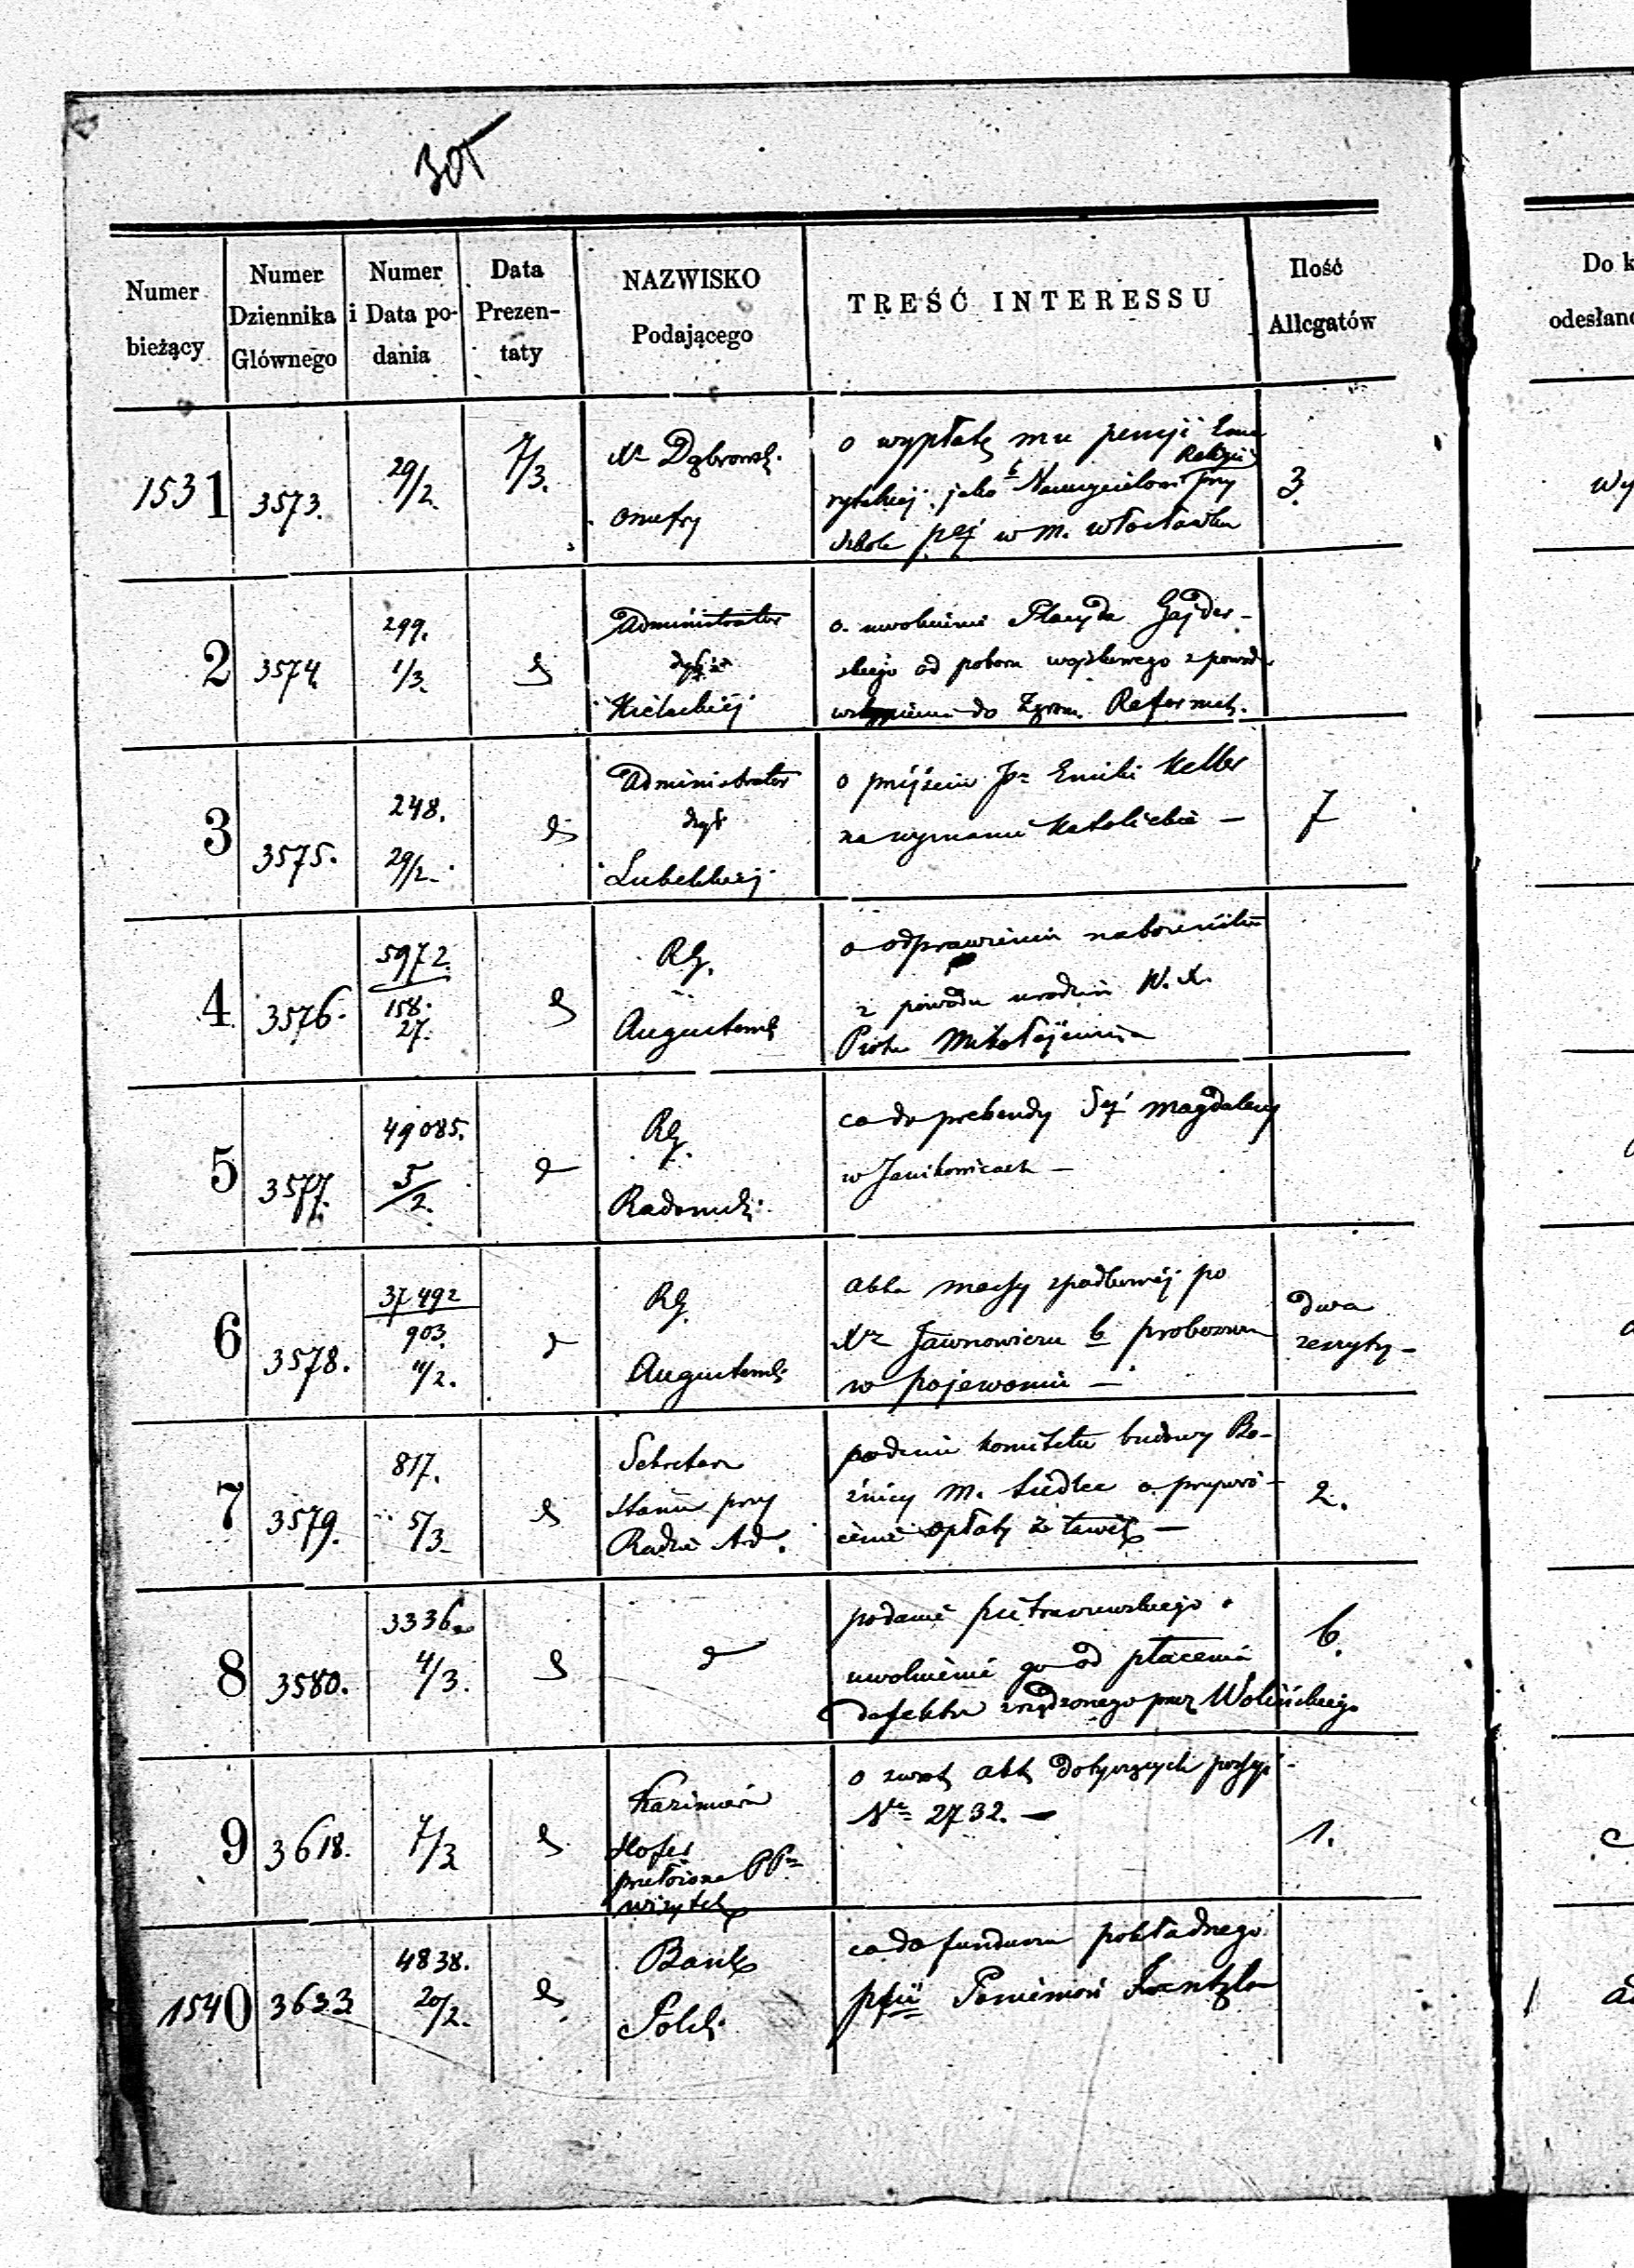 305
Numer bieżący
Numer Dziennika Głównego
Numer i Data podania
Data Prezentaty
NAZWISKO Podającego
TREŚĆ INTERESSU
Ilość Allegatów
Do k
odesłano
1531
3573.
29/2.
7/3.
Xa Dąbrowsk.
Onufry
o wypłatę mu pensji Eme
Religii
rytalnej jako b Nauczycielowi przy
szkole w m. Włocławku
3.
wy
2
3574
299.
1/3.
Administrator
Kieleckiej
o uwolnienie Placyda Gajder-
skiego od poboru wojskowego z powod.
wstąpienia do Zgrom. Reformat.
3
3575.
248.
29/2.
Administrator
dyec
Lubelskiej
o przejściu Pr Emilii Keller
na wyznanie katolickie —
7
4
3576.
5972.
158.
27.
RG.
Augustowsk
o odprawieniu nabożeństw
z powodu urodzin W. X.
Piotra Mikołajewicza
5
3577.
49085.
5/2.
RG.
Radomsk.
co do prebendy Sej Magdaleny
w Janikowicach —
6
3578.
37492
903.
11/2.
RG.
Augustowsk
akta massy spadkowej po
Xdz b proboszczu
w Pojewoniu —
dwa
zeszyty —
7
3579.
817.
5/3.
Sekretarz
Stanu przy
Radzie Ad.
podanie komitetu budowy Bo-
żnicy m. Siedlec o przywró-
cenie opłaty
2.
8
3580.
3336.
4/3.
podanie Pietraszewskiego o
uwolnienie go od płacenia
defektu zrządzonego przez Wolińskiego
6.
9
3618.
7/3
Kazimiera
Hofer
przełożona PPn
wizytek
o zwrot akt dotyczących possyi
No 2732. —
1.
1540
3623
4838.
20/2.
Bank
Polsk.
co do funduszu pokładnego
Poniemoń